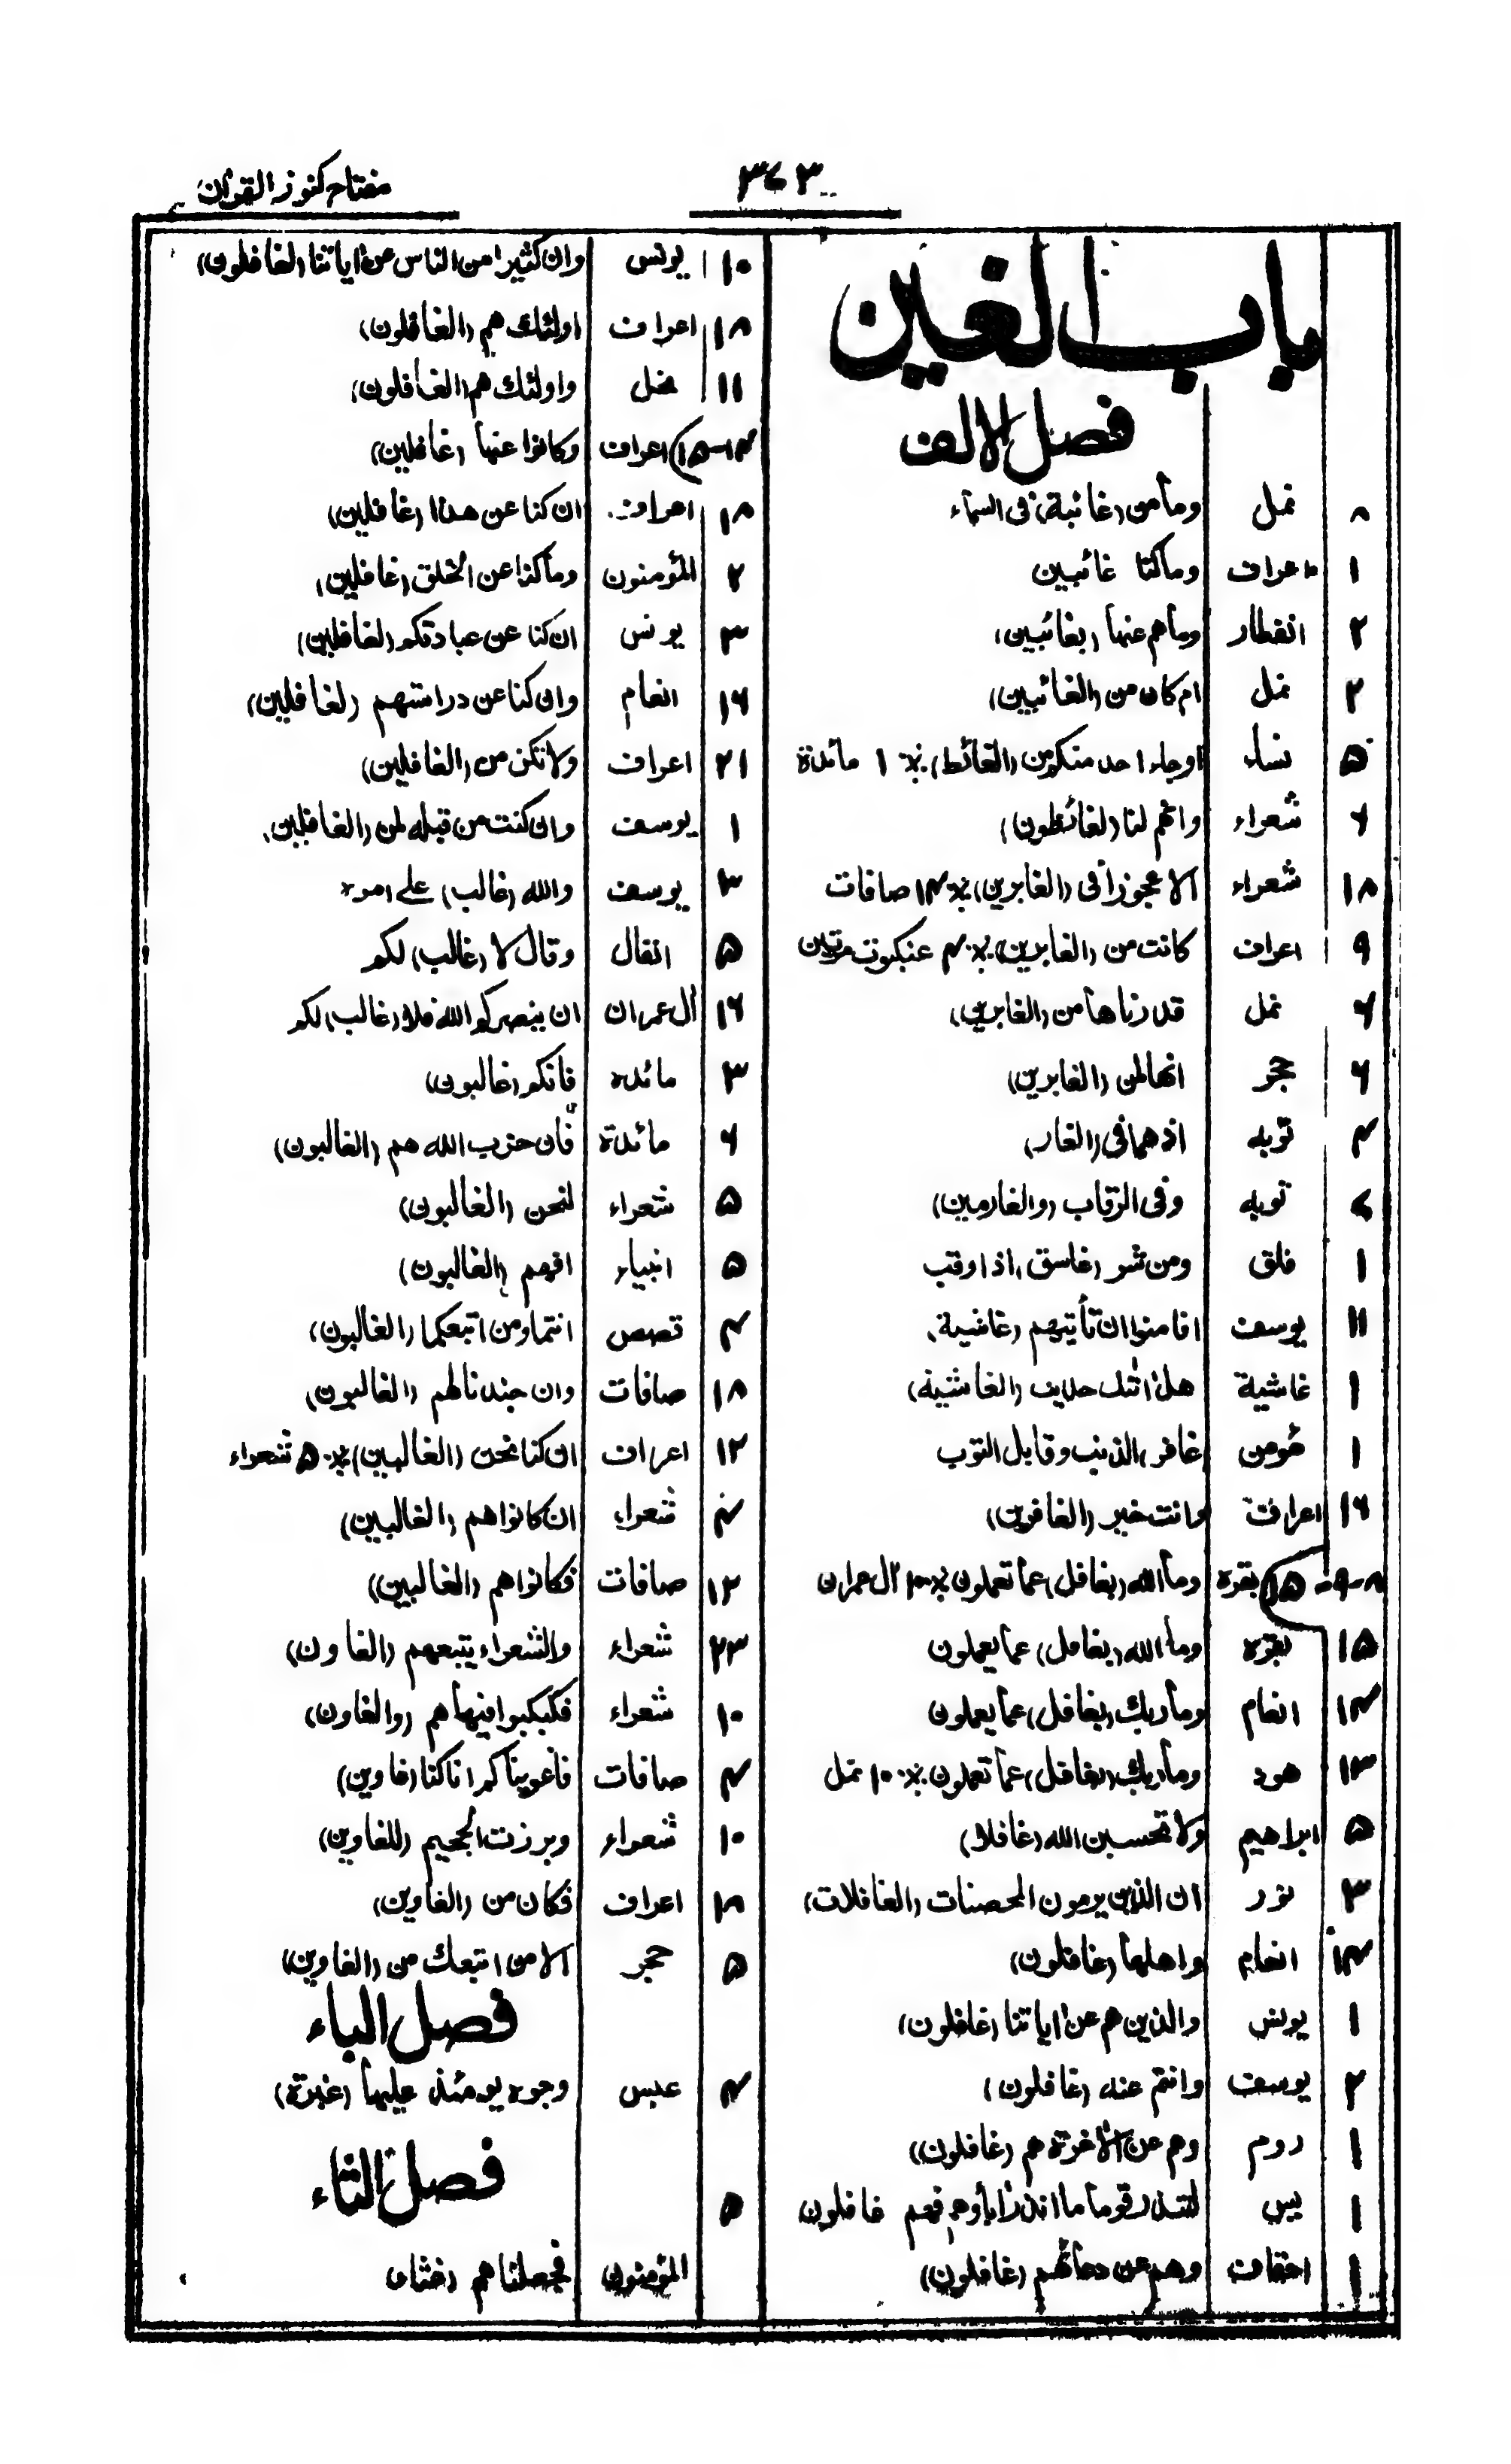 ٣٧٣
مفتاح كنوز القرآن
باب الغين
فصل الالف
٨ نمل وما من (غائبة) فى السماء
١ اعراف وما كنا غائبين
٢ انفطار وما هم عنها (بغائبين)
٢ نمل ام كان من (الغائبين)
٥ نساء اوجاء احد منكم من (الغائط) ٪ ١ مائدة
٤ شعراء وانهم لنا (لغائظون)
١٨ شعراء الا عجوزا فى (الغابرين) ٪ ١٤ صافات
٩ اعراف كانت من (الغابرين) ٪ ٤ عنكبوت مرتين
٦ نمل قدرناها من (الغابرين)
٦ حجر انها لمن (الغابرين)
٤ توبه اذ هما فى (الغار)
٧ توبه وفى الرقاب (والغارمين)
١ فلق ومن شر (غاسق) اذا وقب
١١ يوسف افامنوا ان تأتيهم (غاشية)
١ غاشية هل اتٰك حديث (الغاشية)
١ مؤمن (غافر) الذنب وقابل التوب
١٦ اعراف وانت خير (الغافرين)
٨-٩-١٥ بقره وما الله (بغافل) عما تعملون ٪ ١٠ ال عمران
١٥ بقره وما الله (بغافل) عما يعملون
١٤ انعام وما ربك (بغافل) عما يعملون
١٣ هود وما ربك (بغافل) عما تعملون ٪ ١٠ نمل
٥ ابراهيم ولا تحسبن الله (غافلا)
٣ نور ان الذين يرمون المحصنات (الغافلات)
١٤ انعام واهلها (غافلون)
١ يونس والذين هم عن اياتنا (غافلون)
٢ يوسف وانتم عنه (غافلون)
١ روم وهم عن الاخرة هم (غافلون)
١ يس لتنذر قوما ما انذر اباؤهم فهم غافلون
١ احقاف وهم عن دعائهم (غافلون)
١٠ يونس وان كثيرا من الناس عن اياتنا (لغافلون)
١٨ اعراف اولئك هم (الغافلون)
١١ نحل واولئك هم (الغافلون)
١٤-١٥ اعراف وكانوا عنها (غافلين)
١٨ اعراف ان كنا عن هذا (غافلين)
٢ المؤمنون وما كنا عن الخلق (غافلين)
٣ يونس ان كنا عن عبادتكم (لغافلين)
١٦ انعام وان كنا عن دراستهم (لغافلين)
٢١ اعراف ولا تكن من (الغافلين)
١ يوسف وان كنت من قبله لمن (الغافلين)
٣ يوسف والله (غالب) على امره
٥ انفال وقال لا (غالب) لكم
١٦ اٰل عمران ان ينصركم الله فلا (غالب) لكم
٣ مائده فانكم (غالبون)
٦ مائدة فان حزب الله هم (الغالبون)
٥ شعراء لنحن (الغالبون)
٥ انبياء افهم (الغالبون)
٤ قصص انتما ومن اتبعكما (الغالبون)
١٨ صافات وان جندنا لهم (الغالبون)
١٢ اعراف ان كنا نحن (الغالبين) ٪ ٥ شعراء
٤ شعراء ان كانوا هم (الغالبين)
١٢ صافات فكانوا هم (الغالبين)
٢٣ شعراء والشعراء يتبعهم (الغاون)
١٠ شعراء فكبكبوا فيها هم (والغاون)
٤ صافات فاغويناكم انا كنا (غاوين)
١٠ شعراء وبرزت الجحيم (للغاوين)
١٨ اعراف فكان من (الغاوين)
٥ حجر الا من اتبعك من (الغاوين)
فصل الباء
٤ عبس وجوه يومئذ عليها (غبرة)
فصل الثاء
٥
المؤمنون فجعلناهم (غثاء)